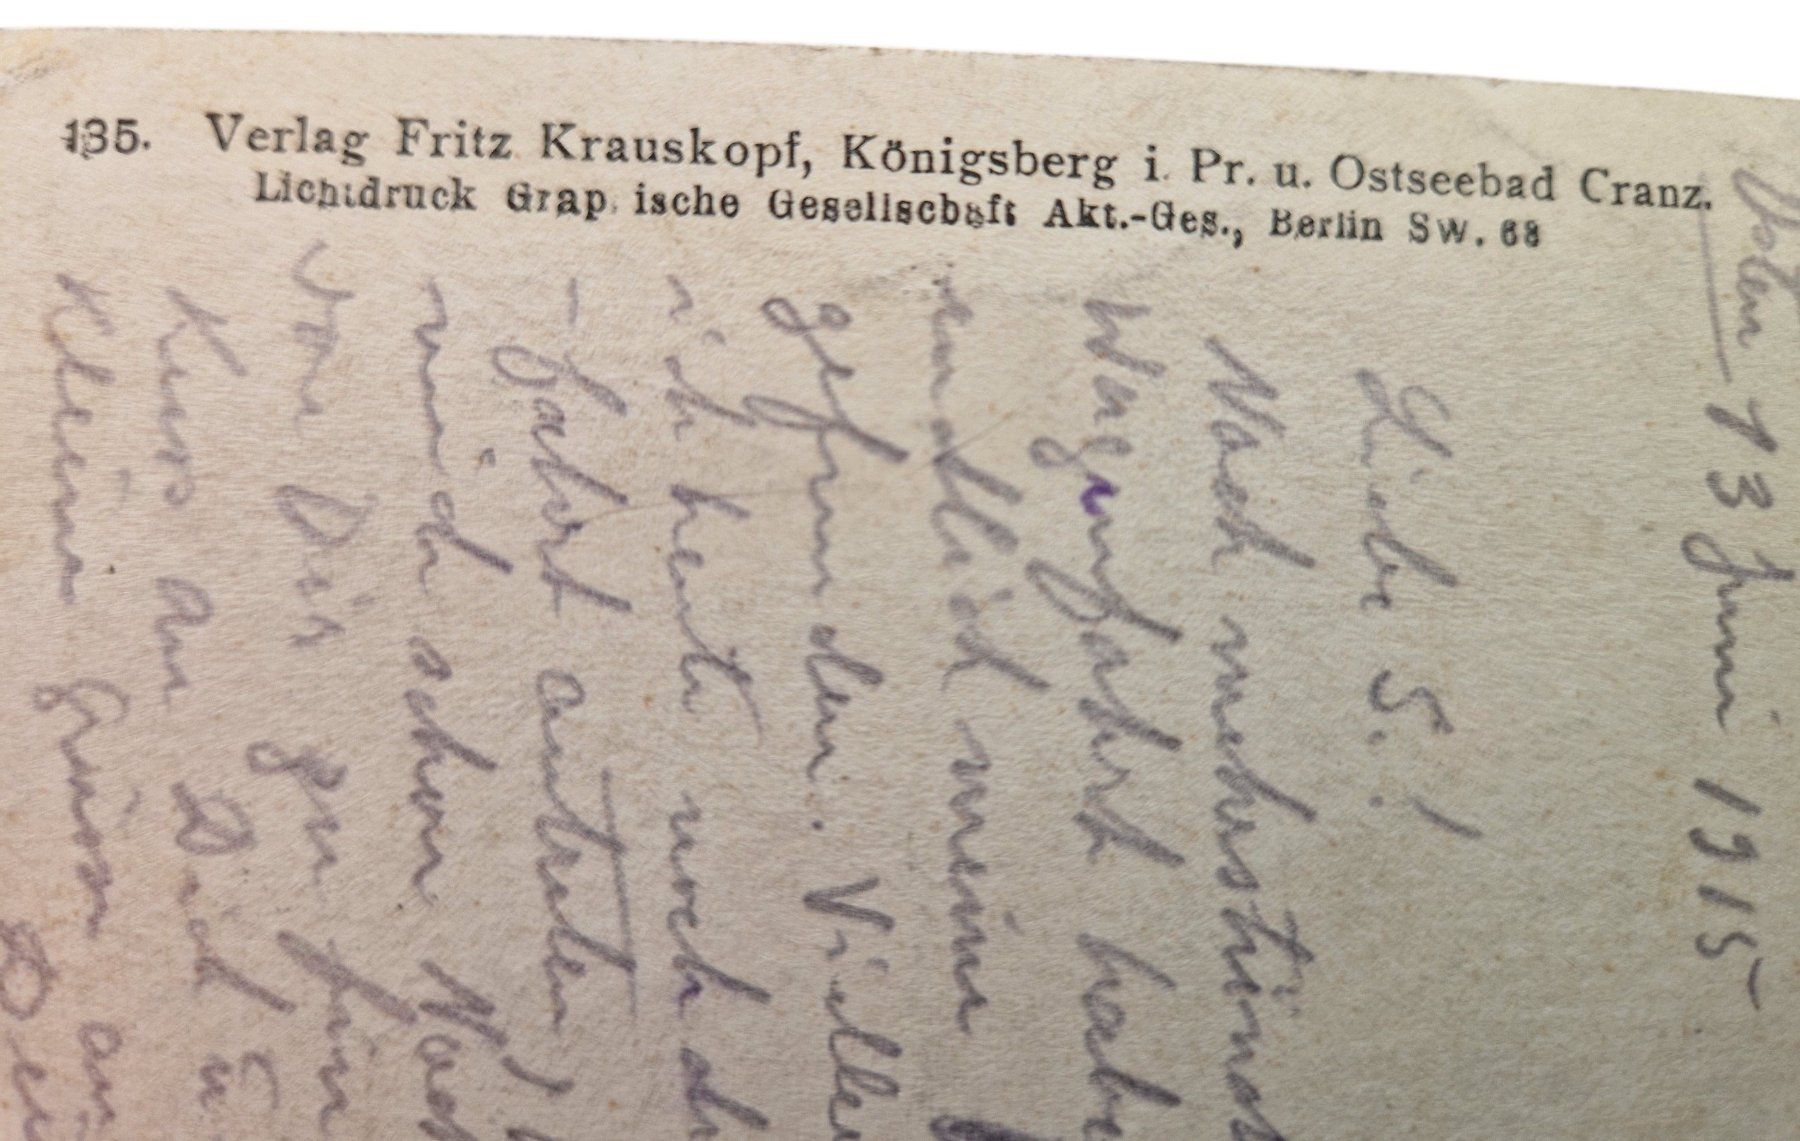 135. Verlag Fritz Krauskopf, Königsberg i. Pr. u. Ostseebad Cranz.
Lichtdruck Grap ische Gesellschaft Akt.-Ges., Berlin SW. 68
13 Juni 1915
Liebe S.!
Nach mehrstünd
Wagenfahrt habe
endlich meine
gefunden. Vielle
ich heute noch d
- fahrt antreten
mich schon
von Dir zu
Kuss an Dich u
Kleine Grüsse an